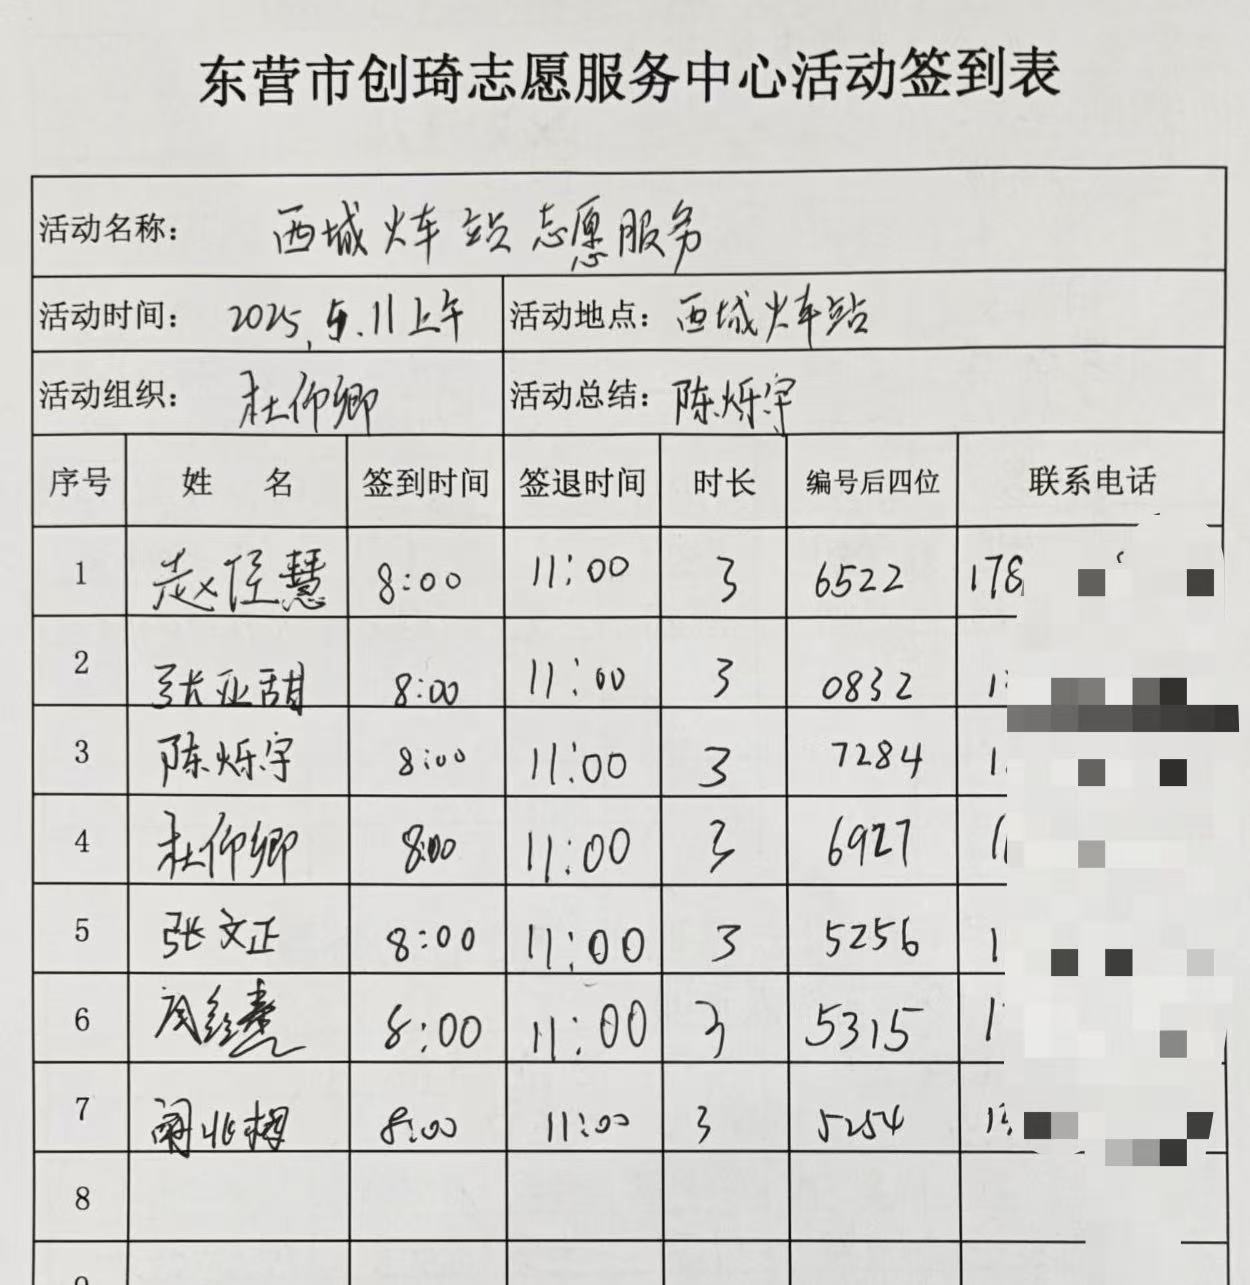 东营市创琦志愿服务中心活动签到表
活动名称： 西城火车站志愿服务
活动时间： 2025.5.11上午 活动地点： 西城火车站
活动组织： 杜仰卿 活动总结： 陈烁宇
序号 姓 名 签到时间 签退时间 时长 编号后四位 联系电话
1 赵佳慧 8:00 11:00 3 6522 178
2 张亚甜 8:00 11:00 3 0832 1
3 陈烁宇 8:00 11:00 3 7284 1
4 杜仰卿 8:00 11:00 3 6927 1
5 张文正 8:00 11:00 3 5256 1
6 8:00 11:00 3 5315 1
7 8:00 11:00 3 5254 1
8